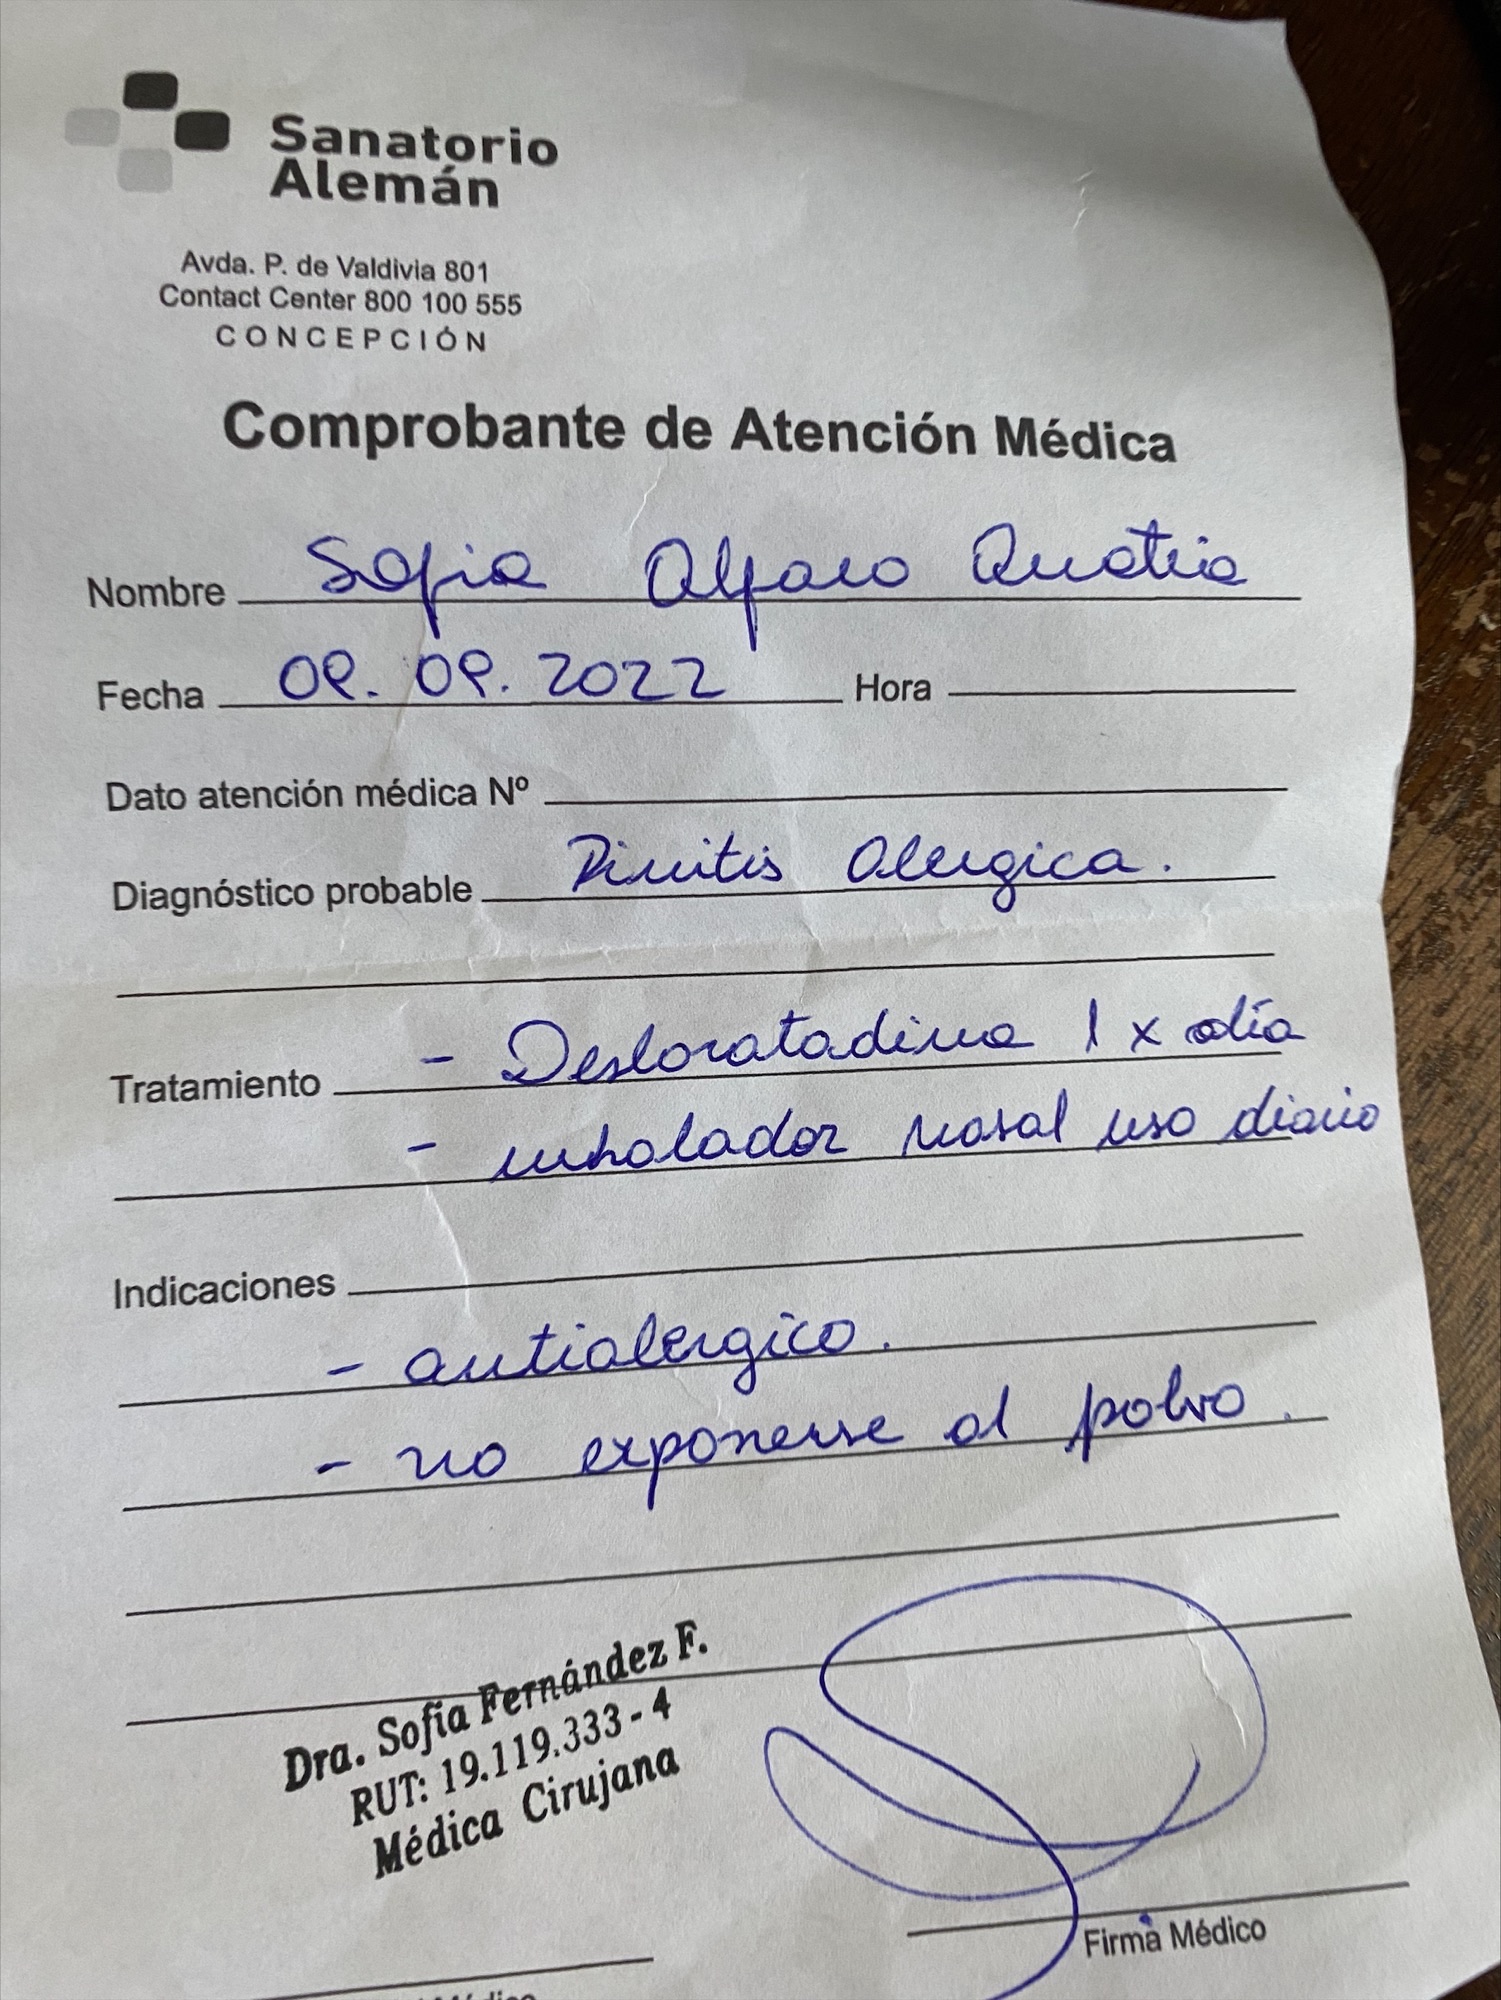 Sanatorio
Alemán
Avda. P. de Valdivia 801
Contact Center 800 100 555
CONCEPCIÓN
Comprobante de Atención Médica
Nombre Sofia Alfaro
Fecha 09.09.2022 Hora
Dato atención médica Nº
Diagnóstico probable Rinitis alergica.
- Desloratadina 1 x día
Tratamiento
- inhalador nasal uso diario
Indicaciones
- antialergico.
- no exponerse al polvo.
Dra. Sofia Fernández F.
RUT: 19.119.333-4
Médica Cirujana
Firma Médico